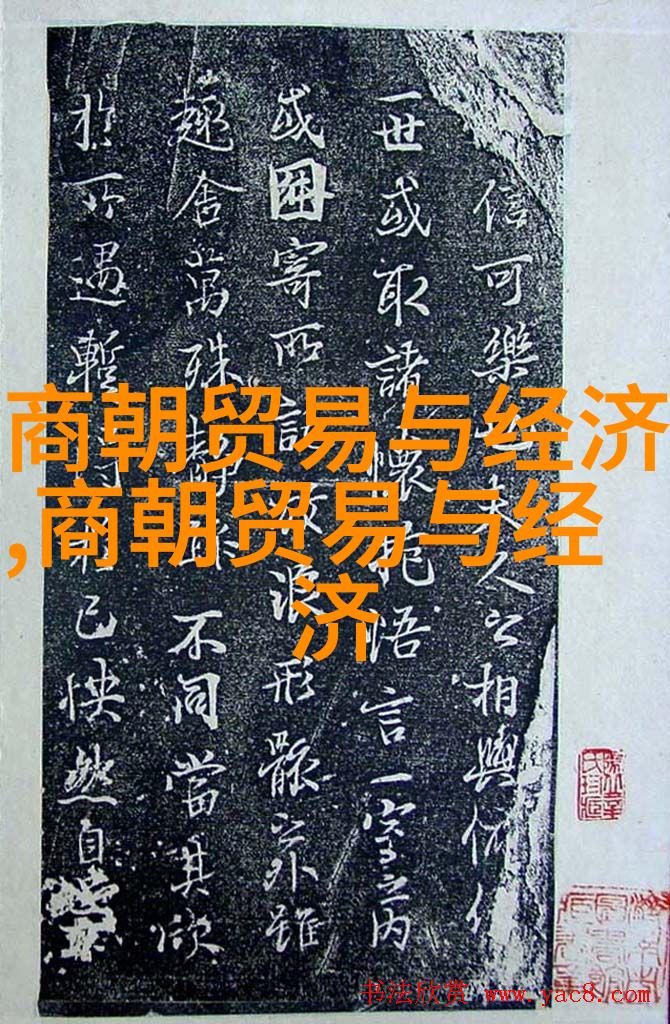 商朝贸易与经济
,商朝贸易与经
济
信可樂夫人之相與俯仰
一世或取諸懷抱悟言一室之内
或因寄所放浪形骸之外雖
趣舍萬殊靜不同當其欣
於所遇暫己怏然自
书法欣赏 www.yac8.com